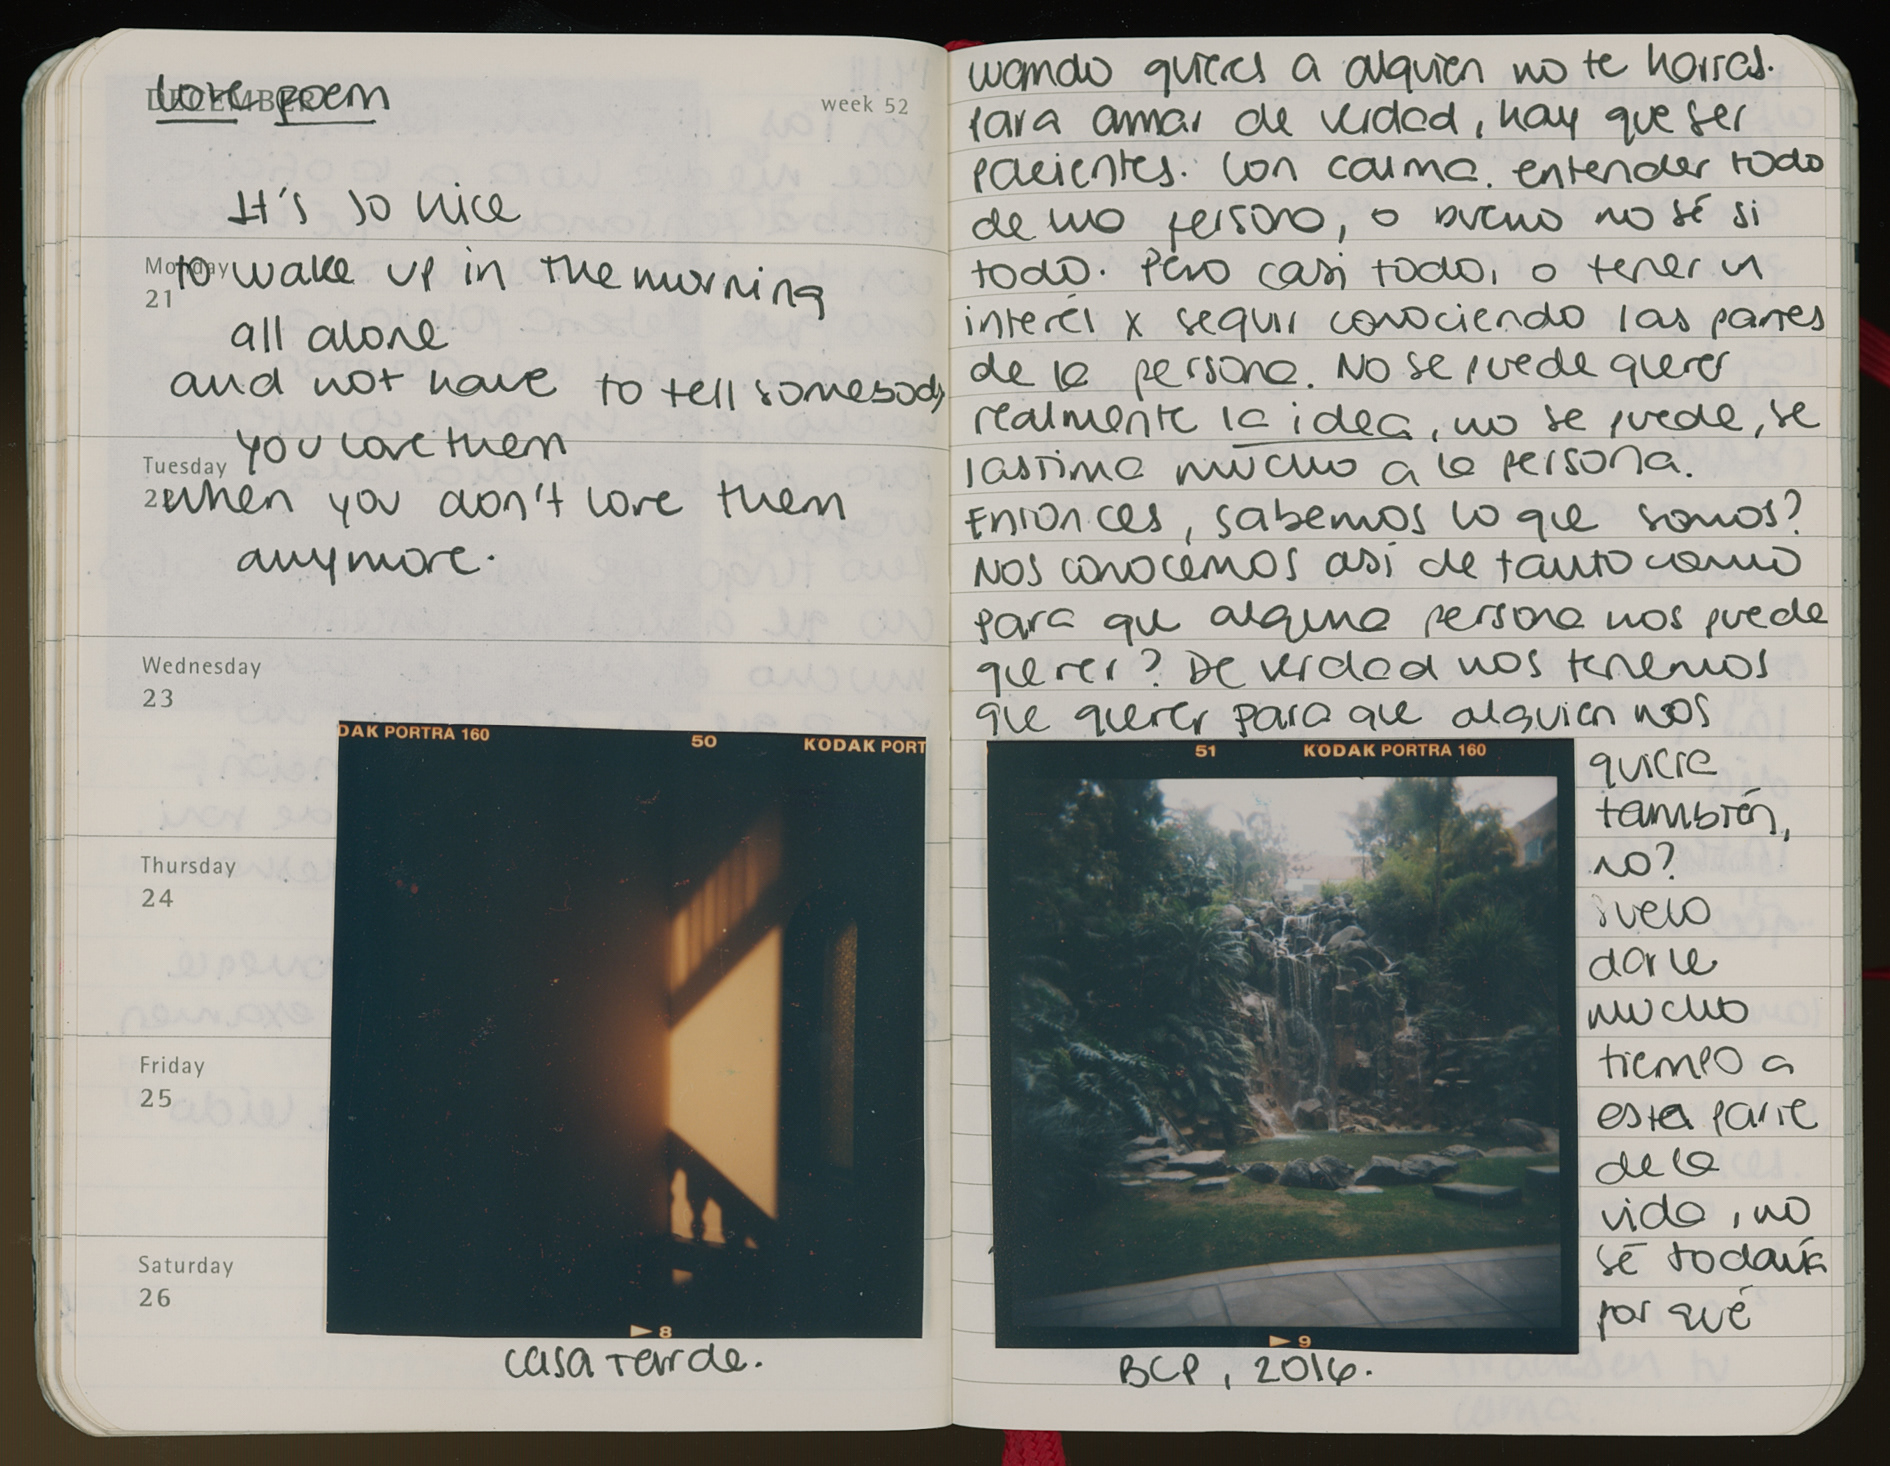 love poem
DECEMBER
week 52
It's so nice
Monday
21
to wake up in the morning
all alone
and not have to tell somebody
you love them
Tuesday
when you don't love them
anymore.
Wednesday
23
Thursday
24
Friday
25
Saturday
26
DAK PORTRA 160 50 KODAK PORT
8
casa tarde.
cuando quieres a alguien no te
para amar de verdad, hay que ser
pacientes. Con calma. entender todo
de una persona, o bueno no sé si
todo. Pero casi todo, o tener un
interés x seguir conociendo las partes
de la persona. No se puede querer
realmente la idea, no se puede, se
lastima mucho a la persona.
Entonces, sabemos lo que somos?
Nos conocemos así de tanto como
para que alguna persona nos puede
querer? De verdad nos tenemos
que querer para que alguien nos
quiera
también,
no?
suelo
darle
mucho
tiempo a
esta parte
de la
vida, no
sé todavía
por qué
51 KODAK PORTRA 160
9
BCP, 2016.